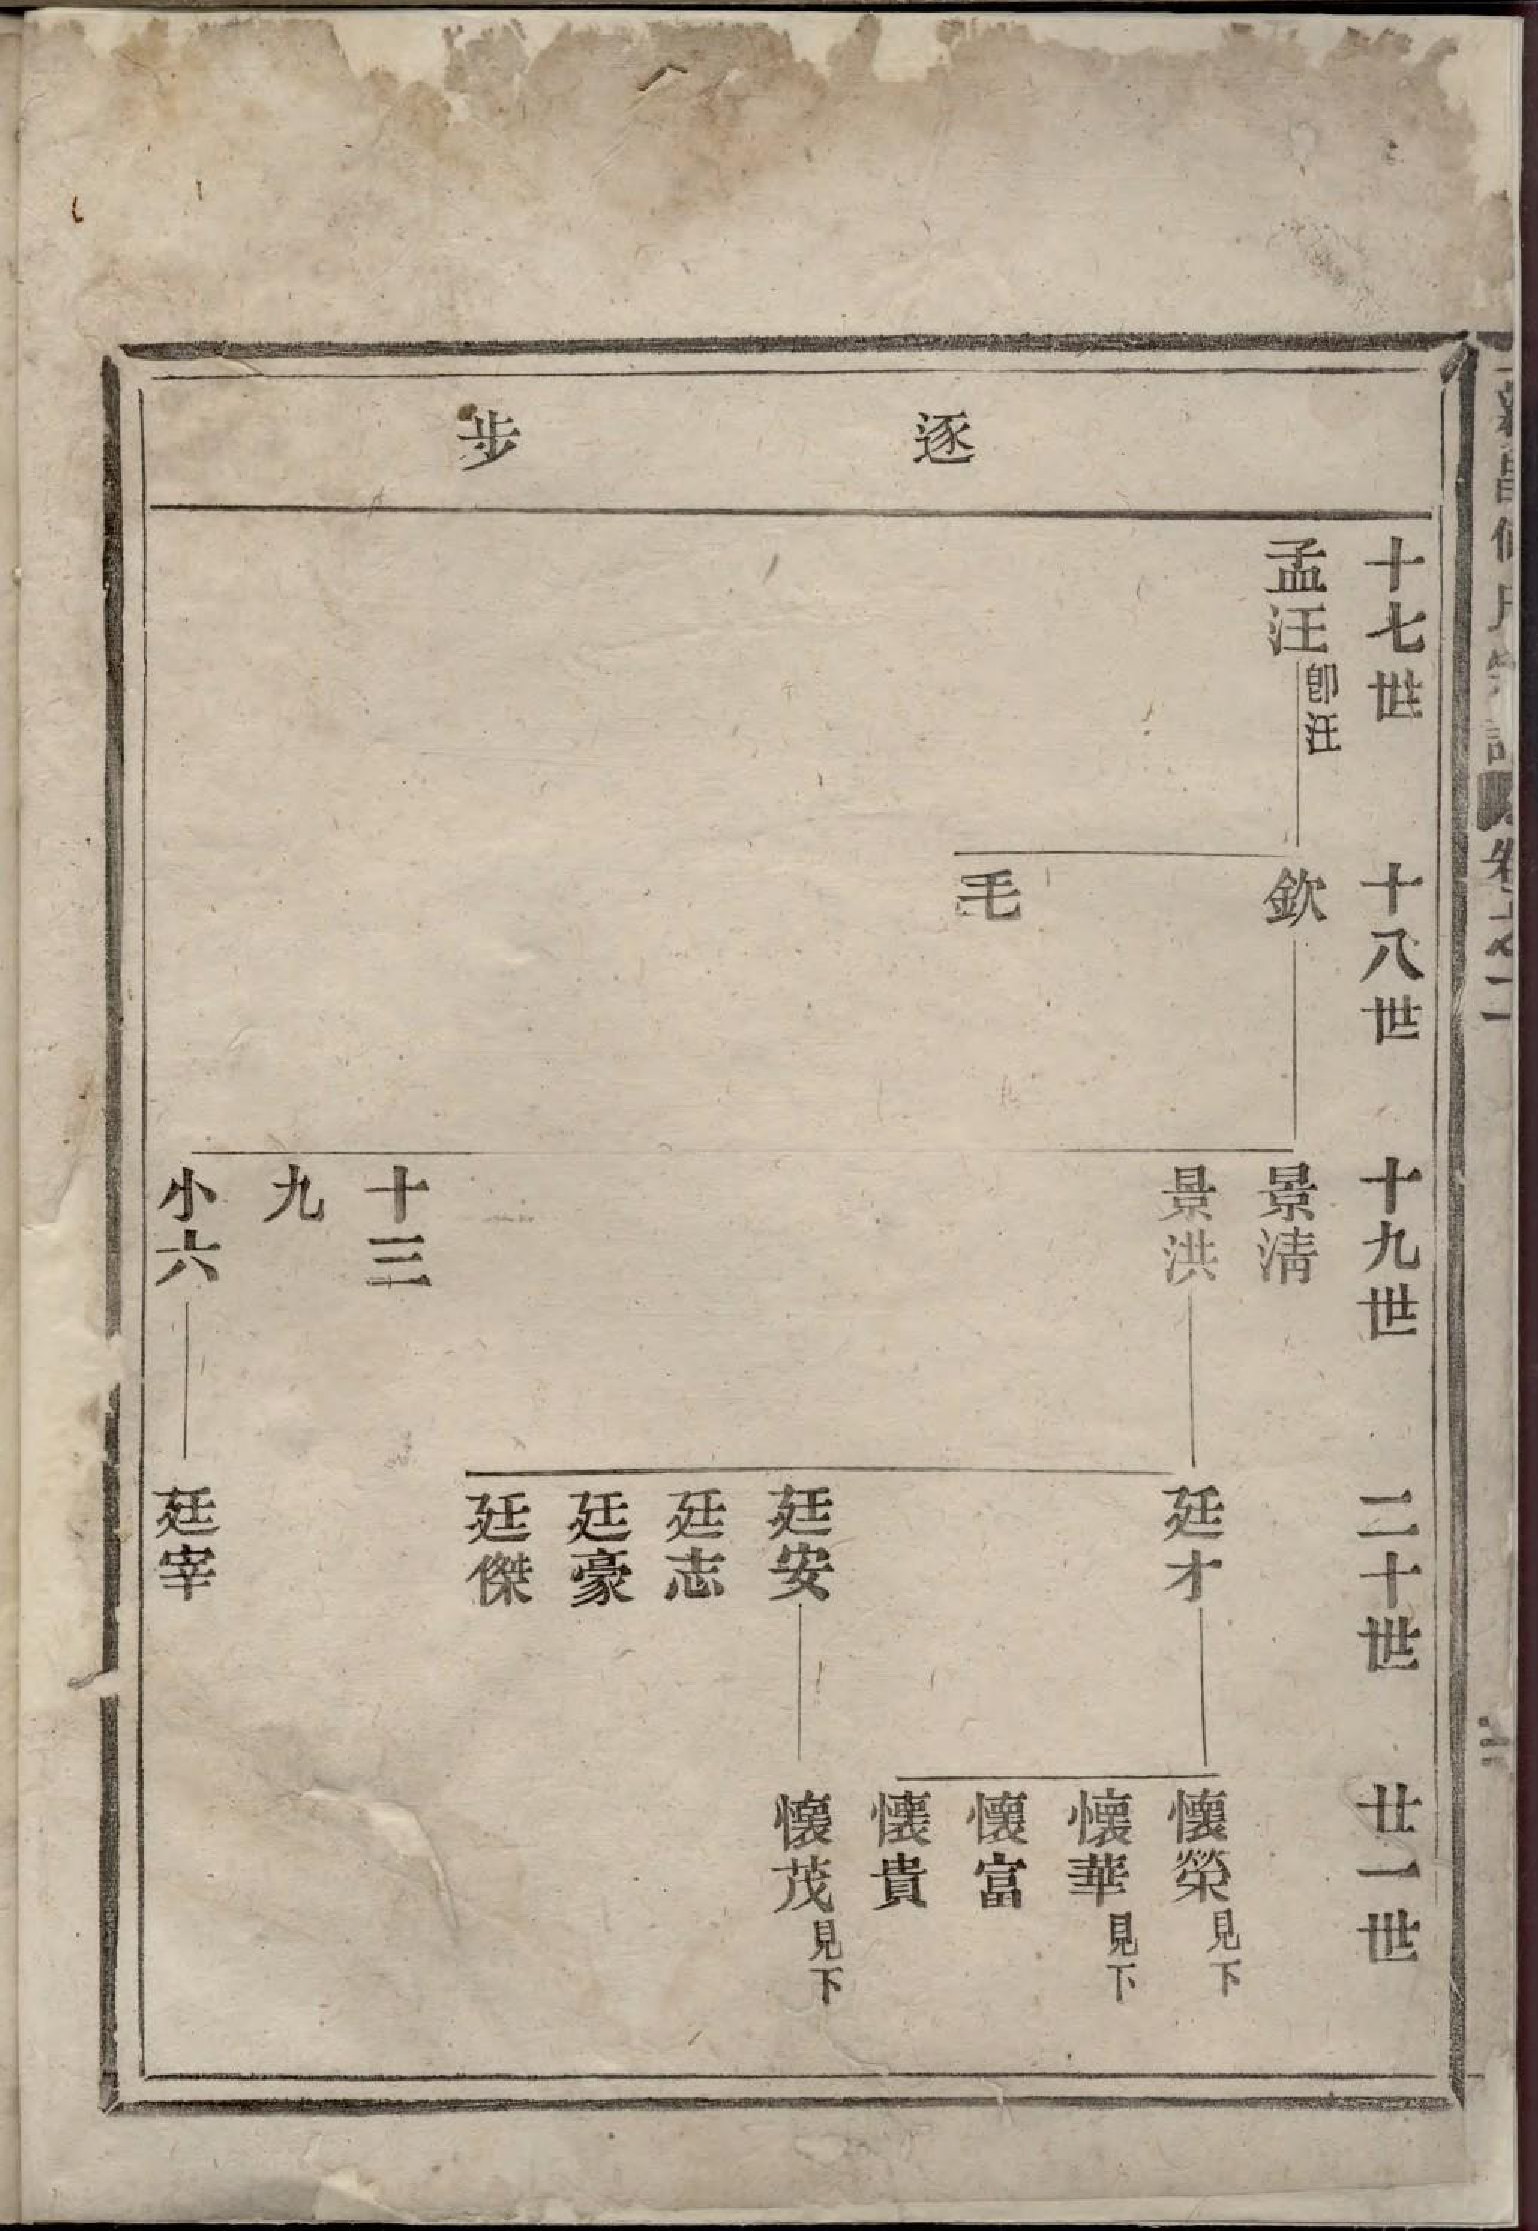 逐步
十七世
十八世
十九世
二十世
廿一世
孟汪
卽汪
欽
毛
景清
景洪
十三
九
小六
廷才
廷安
廷志
廷豪
廷傑
廷宰
懷榮見下
懷華見下
懷富
懷貴
懷茂見下